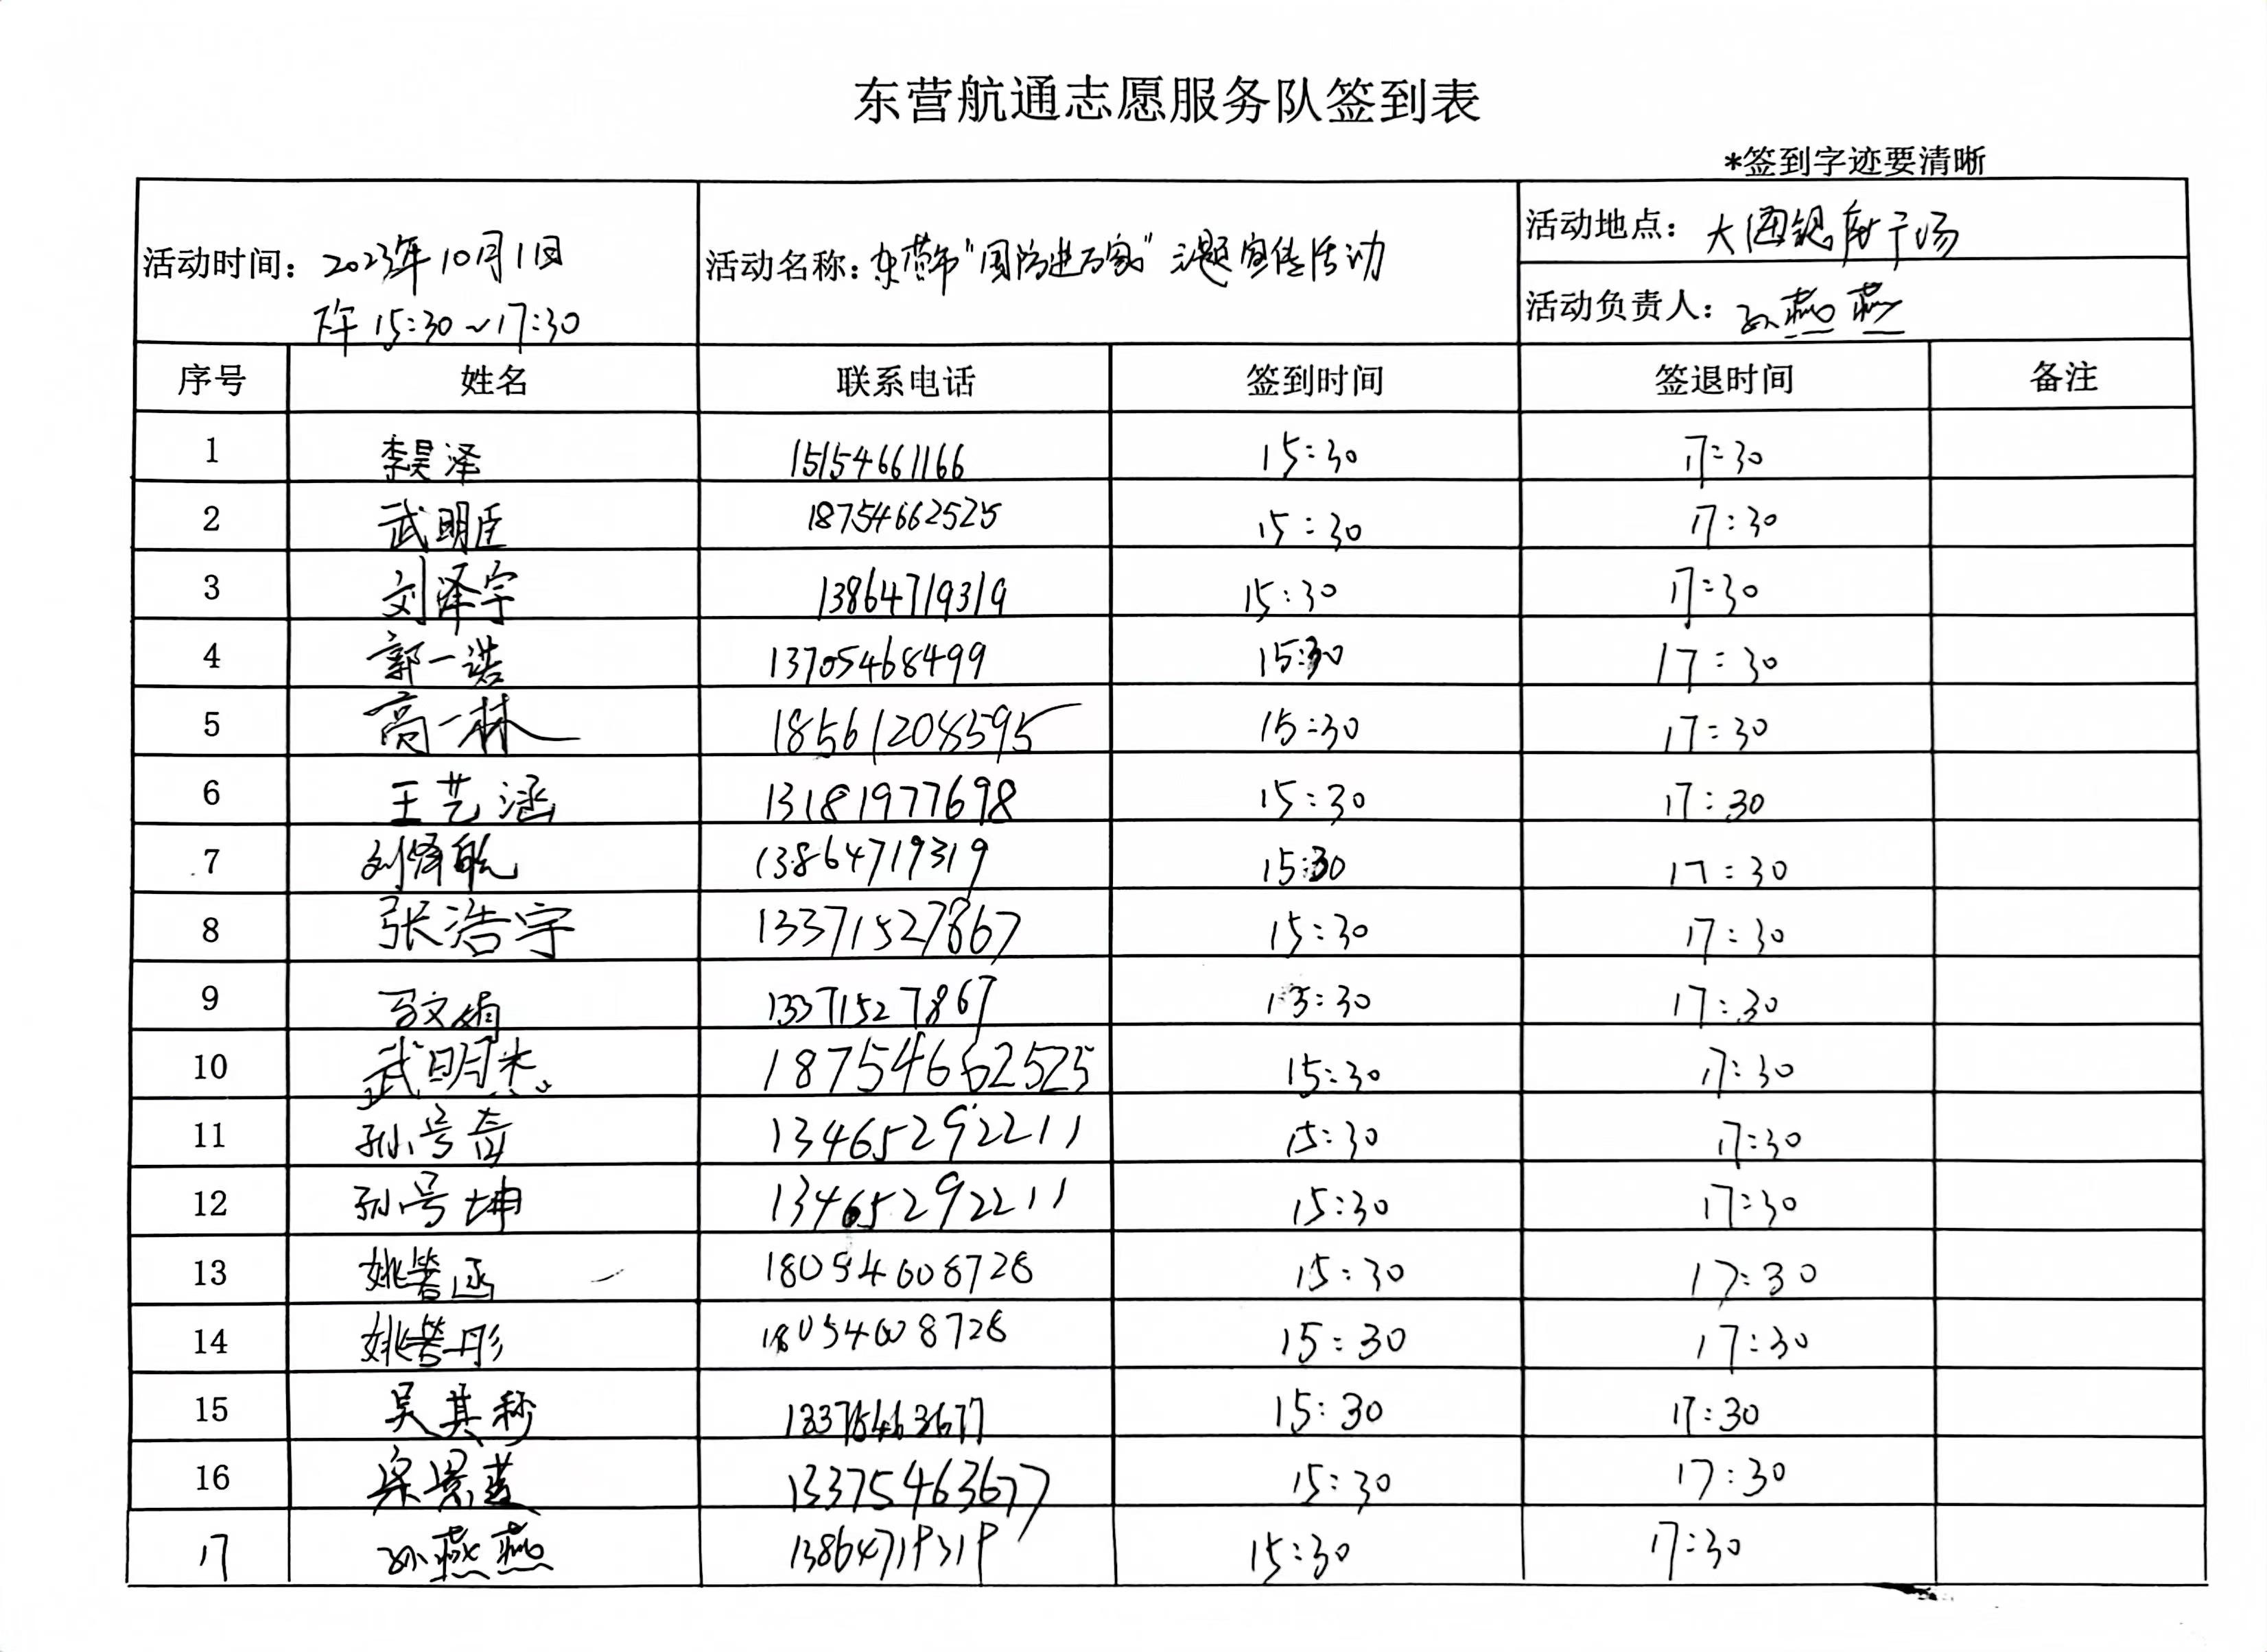 东营航通志愿服务队签到表
*签到字迹要清晰
活动时间：2023年10月1日
下午15:30~17:30
活动名称：东营市"国防进万家"主题宣传活动
活动地点：大润银座广场
活动负责人：孙燕燕
序号 姓名 联系电话 签到时间 签退时间 备注
1 李昊泽 15154661166 15:30 17:30
2 武明臣 18754662525 15:30 17:30
3 刘泽宇 13864719319 15:30 17:30
4 郭一诺 13705468499 15:30 17:30
5 高一林 18561208595 15:30 17:30
6 王艺涵 13181977698 15:30 17:30
7 刘泽航 13864719319 15:30 17:30
8 张浩宇 13371527867 15:30 17:30
9 马文娟 13371527867 15:30 17:30
10 武明杰 18754662525 15:30 17:30
11 孙号奇 13465292211 15:30 17:30
12 孙号坤 13465292211 15:30 17:30
13 姚 函 18054608728 15:30 17:30
14 姚 彤 18054608728 15:30 17:30
15 吴其 13375463677 15:30 17:30
16 梁景 13375463677 15:30 17:30
17 孙燕燕 13864719319 15:30 17:30